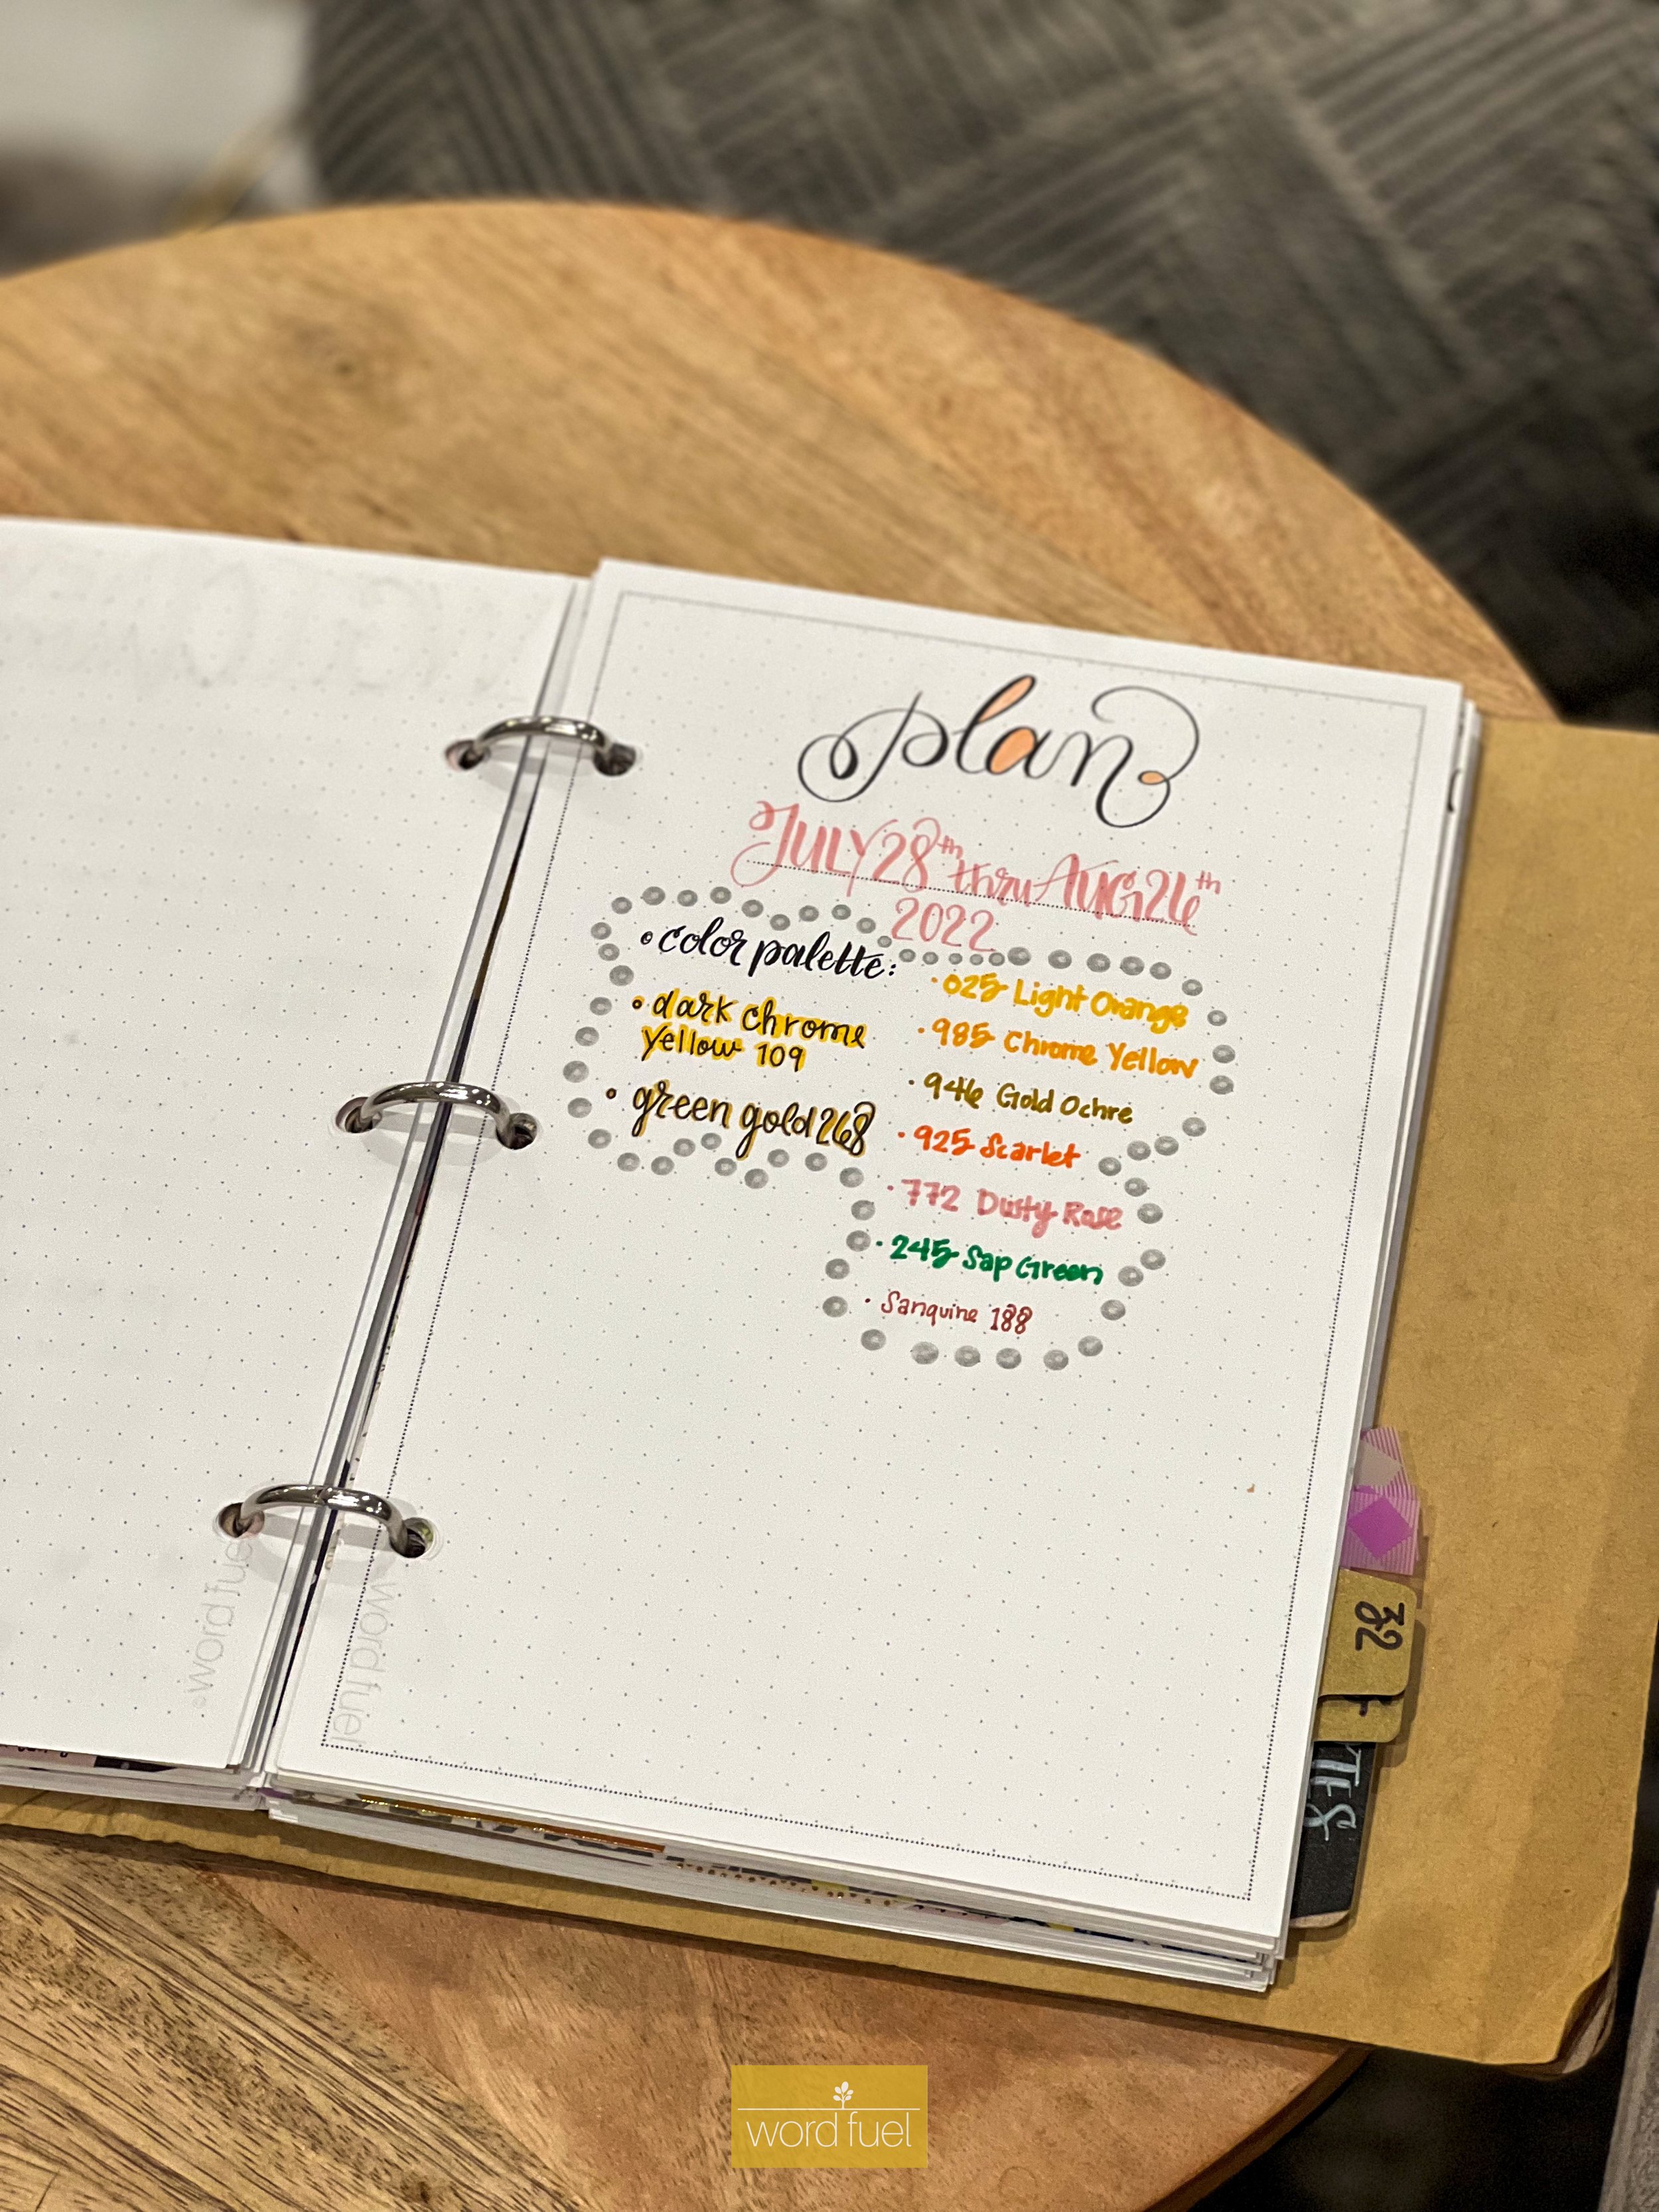 plan
JULY 28th thru AUG 26th
2022
color palette:
dark chrome
yellow 109
green gold 268
• 025 Light Orange
• 985 Chrome Yellow
• 946 Gold Ochre
• 925 Scarlet
• 772 Dusty Rose
• 245 Sap Green
• Sanquine 188
32
©word fuel
word fuel
word fuel